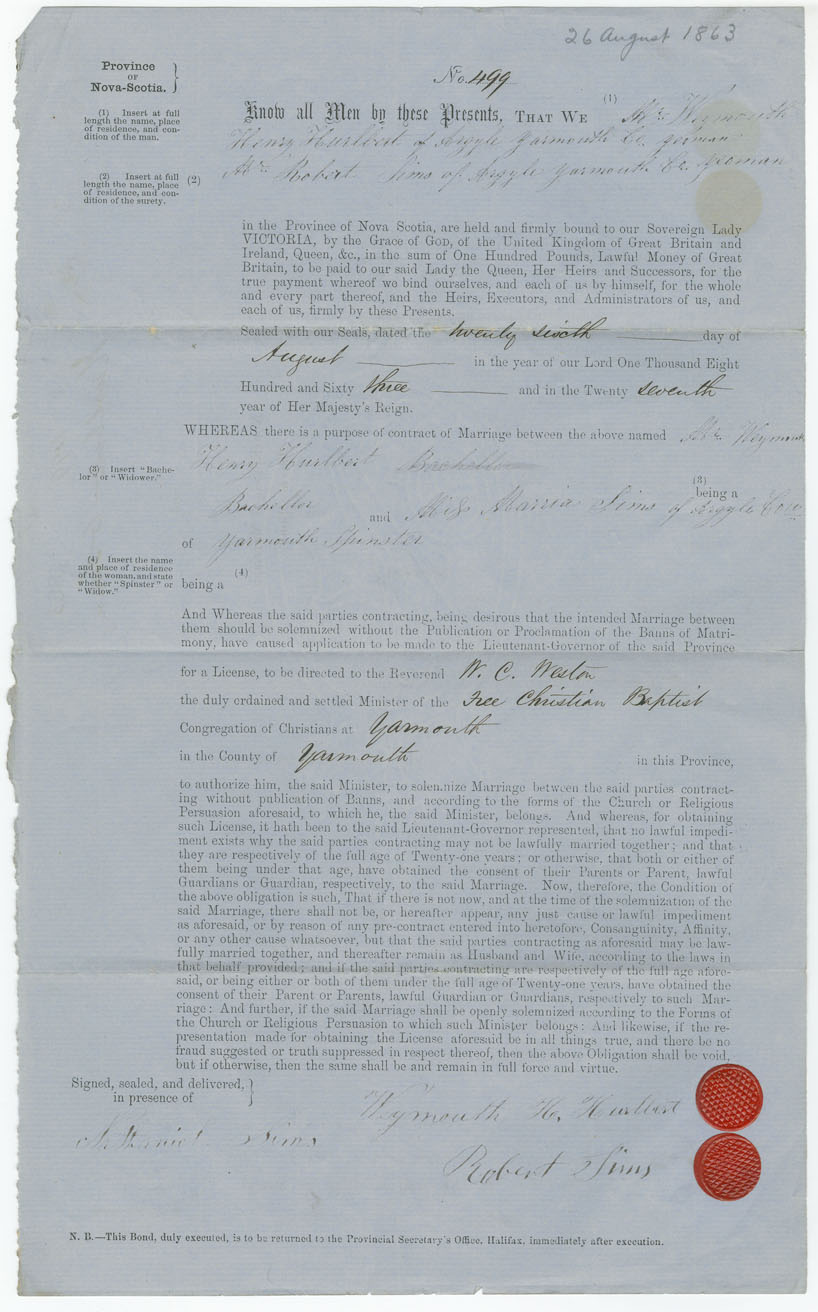 26 August 1863
Province
OF
Nova-Scotia.
No. 499
(1) Insert at full
length the name, place
of residence, and con-
dition of the man.
Know all Men by these Presents, THAT WE (1) Mr. Weymouth
Henry Hurlbert of Argyle Yarmouth Co. yeoman
(2) Insert at full
length the name, place
of residence, and con-
dition of the surety.
(2) Mr. Robert Sims of Argyle Yarmouth Co. yeoman
in the Province of Nova Scotia, are held and firmly bound to our Sovereign Lady
VICTORIA, by the Grace of GOD, of the United Kingdom of Great Britain and
Ireland, Queen, &c., in the sum of One Hundred Pounds, Lawful Money of Great
Britain, to be paid to our said Lady the Queen, Her Heirs and Successors, for the
true payment whereof we bind ourselves, and each of us by himself, for the whole
and every part thereof, and the Heirs, Executors, and Administrators of us, and
each of us, firmly by these Presents.
Sealed with our Seals, dated the twenty sixth day of
August in the year of our Lord One Thousand Eight
Hundred and Sixty three and in the Twenty seventh
year of Her Majesty's Reign.
WHEREAS there is a purpose of contract of Marriage between the above named Mr. Weymouth
Henry Hurlbert Bachellor
(3) Insert "Bache-
lor" or "Widower."
(3)
being a
Bacheller and Miss Marria Sims of Argyle Coun
of Yarmouth Spinster
(4) Insert the name
and place of residence
of the woman, and state
whether "Spinster" or
"Widow."
(4)
being a
And Whereas the said parties contracting, being desirous that the intended Marriage between
them should be solemnized without the Publication or Proclamation of the Banns of Matri-
mony, have caused application to be made to the Lieutenant-Governor of the said Province
for a License, to be directed to the Reverend W. C. Weston
the duly ordained and settled Minister of the Free Christian Baptist
Congregation of Christians at Yarmouth
in the County of Yarmouth in this Province,
to authorize him, the said Minister, to solemnize Marriage between the said parties contract-
ing without publication of Banns, and according to the forms of the Church or Religious
Persuasion aforesaid, to which he, the said Minister, belongs. And whereas, for obtaining
such License, it hath been to the said Lieutenant-Governor represented, that no lawful impedi-
ment exists why the said parties contracting may not be lawfully married together; and that
they are respectively of the full age of Twenty-one years; or otherwise, that both or either of
them being under that age, have obtained the consent of their Parents or Parent, lawful
Guardians or Guardian, respectively, to the said Marriage. Now, therefore, the Condition of
the above obligation is such, That if there is not now, and at the time of the solemnization of the
said Marriage, there shall not be, or hereafter appear, any just cause or lawful impediment
as aforesaid, or by reason of any pre-contract entered into heretofore, Consanguinity, Affinity,
or any other cause whatsoever, but that the said parties contracting as aforesaid may be law-
fully married together, and thereafter remain as Husband and Wife, according to the laws in
that behalf provided; and if the said parties contracting are respectively of the full age afore-
said, or being either or both of them under the full age of Twenty-one years, have obtained the
consent of their Parent or Parents, lawful Guardian or Guardians, respectively to such Mar-
riage: And further, if the said Marriage shall be openly solemnized according to the Forms of
the Church or Religious Persuasion to which such Minister belongs: And likewise, if the re-
presentation made for obtaining the License aforesaid be in all things true, and there be no
fraud suggested or truth suppressed in respect thereof, then the above Obligation shall be void,
but if otherwise, then the same shall be and remain in full force and virtue.
Signed, sealed, and delivered,
in presence of
Weymouth H. Hurlbert
Nathaniel Sims
Robert Sims
N. B.—This Bond, duly executed, is to be returned to the Provincial Secretary's Office, Halifax, immediately after execution.